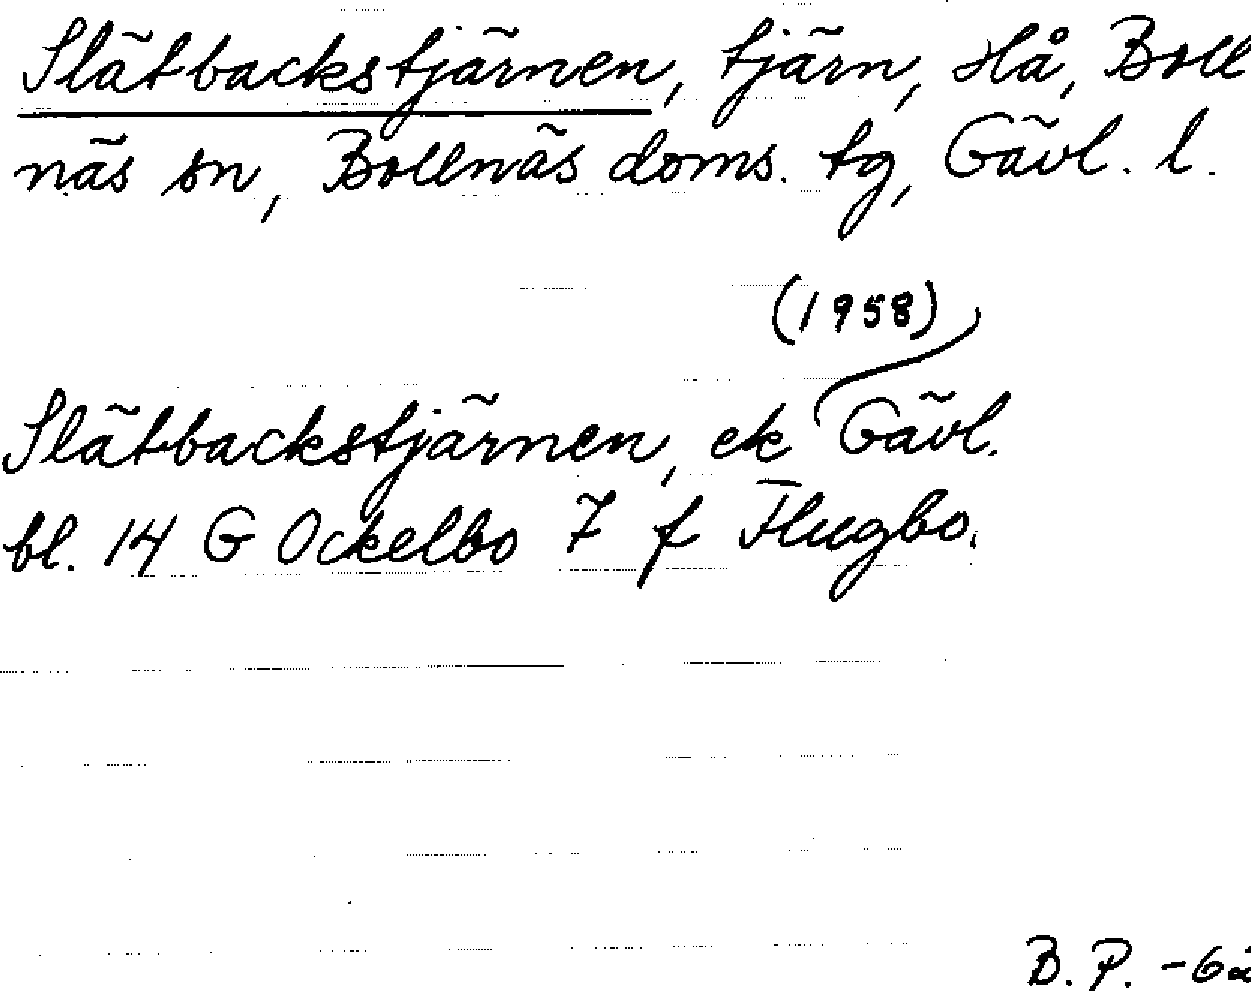 Slätbackstjärnen, tjärn, Hå, Boll
näs sn, Bollnäs doms. tg, Gävl. l.
(1958)
Slätbackstjärnen, ek Gävl.
bl. 14 G Ockelbo 7 f Flugbo.
B. P. -62